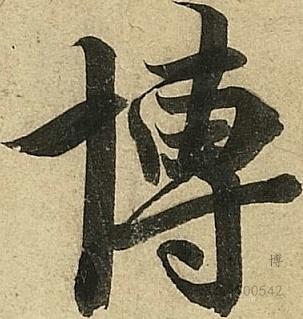 博
博
00542